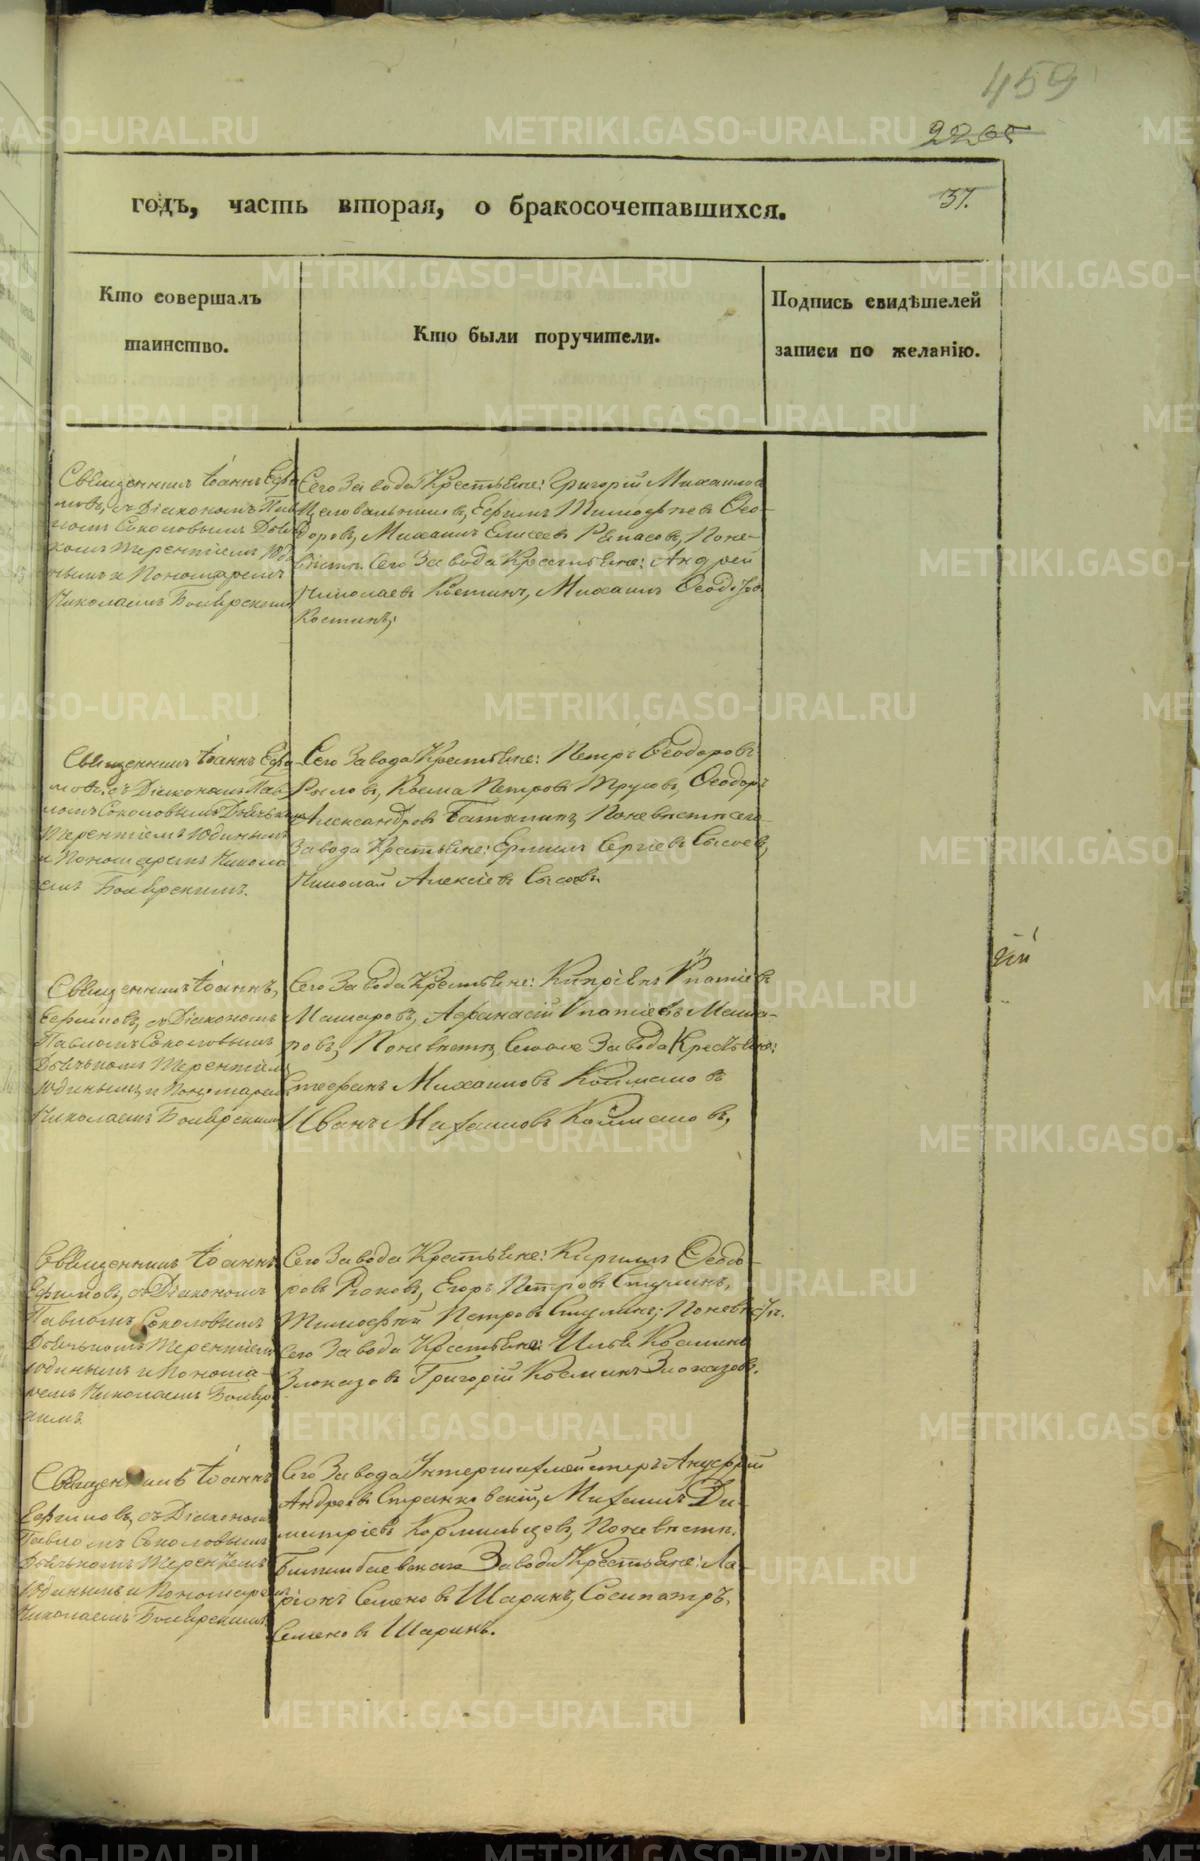 459
2265
годъ, часть вторая, о бракосочетавшихся.
37.
Кто совершалъ
таинство.
Кто были поручители.
Подпись свидѣтелей
записи по желанію.
Священникъ Іоаннъ Ефи-
мовъ, съ Діакономъ Пав-
ломъ Соколовымъ Дьяч-
комъ Терентіемъ Юди-
нымъ и Пономаремъ
Николаемъ Боярскимъ
Сего Завода Крестьяне: Григорій Михаиловъ
Целовальниковъ, Ефимъ Тимофѣевъ Ѳео-
доровъ, Михаилъ Елисеевъ Рѣпасовъ, Поне-
вѣстѣ Сего Завода Крестьяне: Андрей
Николаевъ Костинъ, Михаилъ Ѳеодоровъ
Костинъ;
Священникъ Іоаннъ Ефи-
мовъ, съ Діакономъ Пав-
ломъ Соколовымъ Дьячькомъ
Терентіемъ Юдинымъ
и Пономаремъ Никола-
емъ Боярскимъ.
Сего Завода Крестьяне: Петръ Ѳеодоровъ
Рыловъ, Косма Петровъ Трусовъ, Ѳеодоръ
Александровъ Баталинъ, Поневѣстѣ сего
Завода Крестьяне: Ермилъ Сергѣевъ Сысоевъ,
Николай Алексѣевъ Сысоевъ
Священникъ Іоаннъ,
Ефимовъ, съ Діакономъ
Павломъ Соколовымъ
Дьячькомъ Терентіемъ
Юдинымъ, и Пономаремъ
Николаемъ Боярскимъ
Сего Завода Крестьяне: Кипріянъ Ипатіевъ
Машаровъ, Афанасій Ипатіевъ Маша-
ровъ, Поневѣстѣ, Сегоже Завода Крестьяне:
Стефанъ Михаиловъ Колмаковъ
Иванъ Михаиловъ Колмаковъ,
Священникъ Іоаннъ
Ефимовъ, съ Діакономъ
Павломъ Соколовымъ
Дьячькомъ Терентіемъ
Юдинымъ и Понома-
ремъ Николаемъ Бояр-
скимъ
Сего Завода Крестьяне: Кириллъ Ѳеодо-
ровъ Роковъ, Егоръ Петровъ Стулинъ,
Тимофѣй Петровъ Стулинъ; Поневѣстѣ.
Сего Завода Крестьяне: Илья Косминъ
Злоказовъ Григорій Косминъ Злоказовъ.
Священникъ Іоаннъ
Ефимовъ, съ Діакономъ
Павломъ Соколовымъ
Дьячькомъ Терентьемъ
Юдинымъ и Пономаремъ
Николаемъ Боярскимъ
Сего Завода Унтершихмейстеръ Ануфрій
Андреевъ Странковскій, Михаилъ Ди-
митріевъ Кормильцевъ, Поневѣстѣ.
Билимбаевскаго Завода Крестьяне: Ла-
ріонъ Семеновъ Шаринъ, Сосипатръ,
Семеновъ Шаринъ.
METRIKI.GASO-URAL.RU